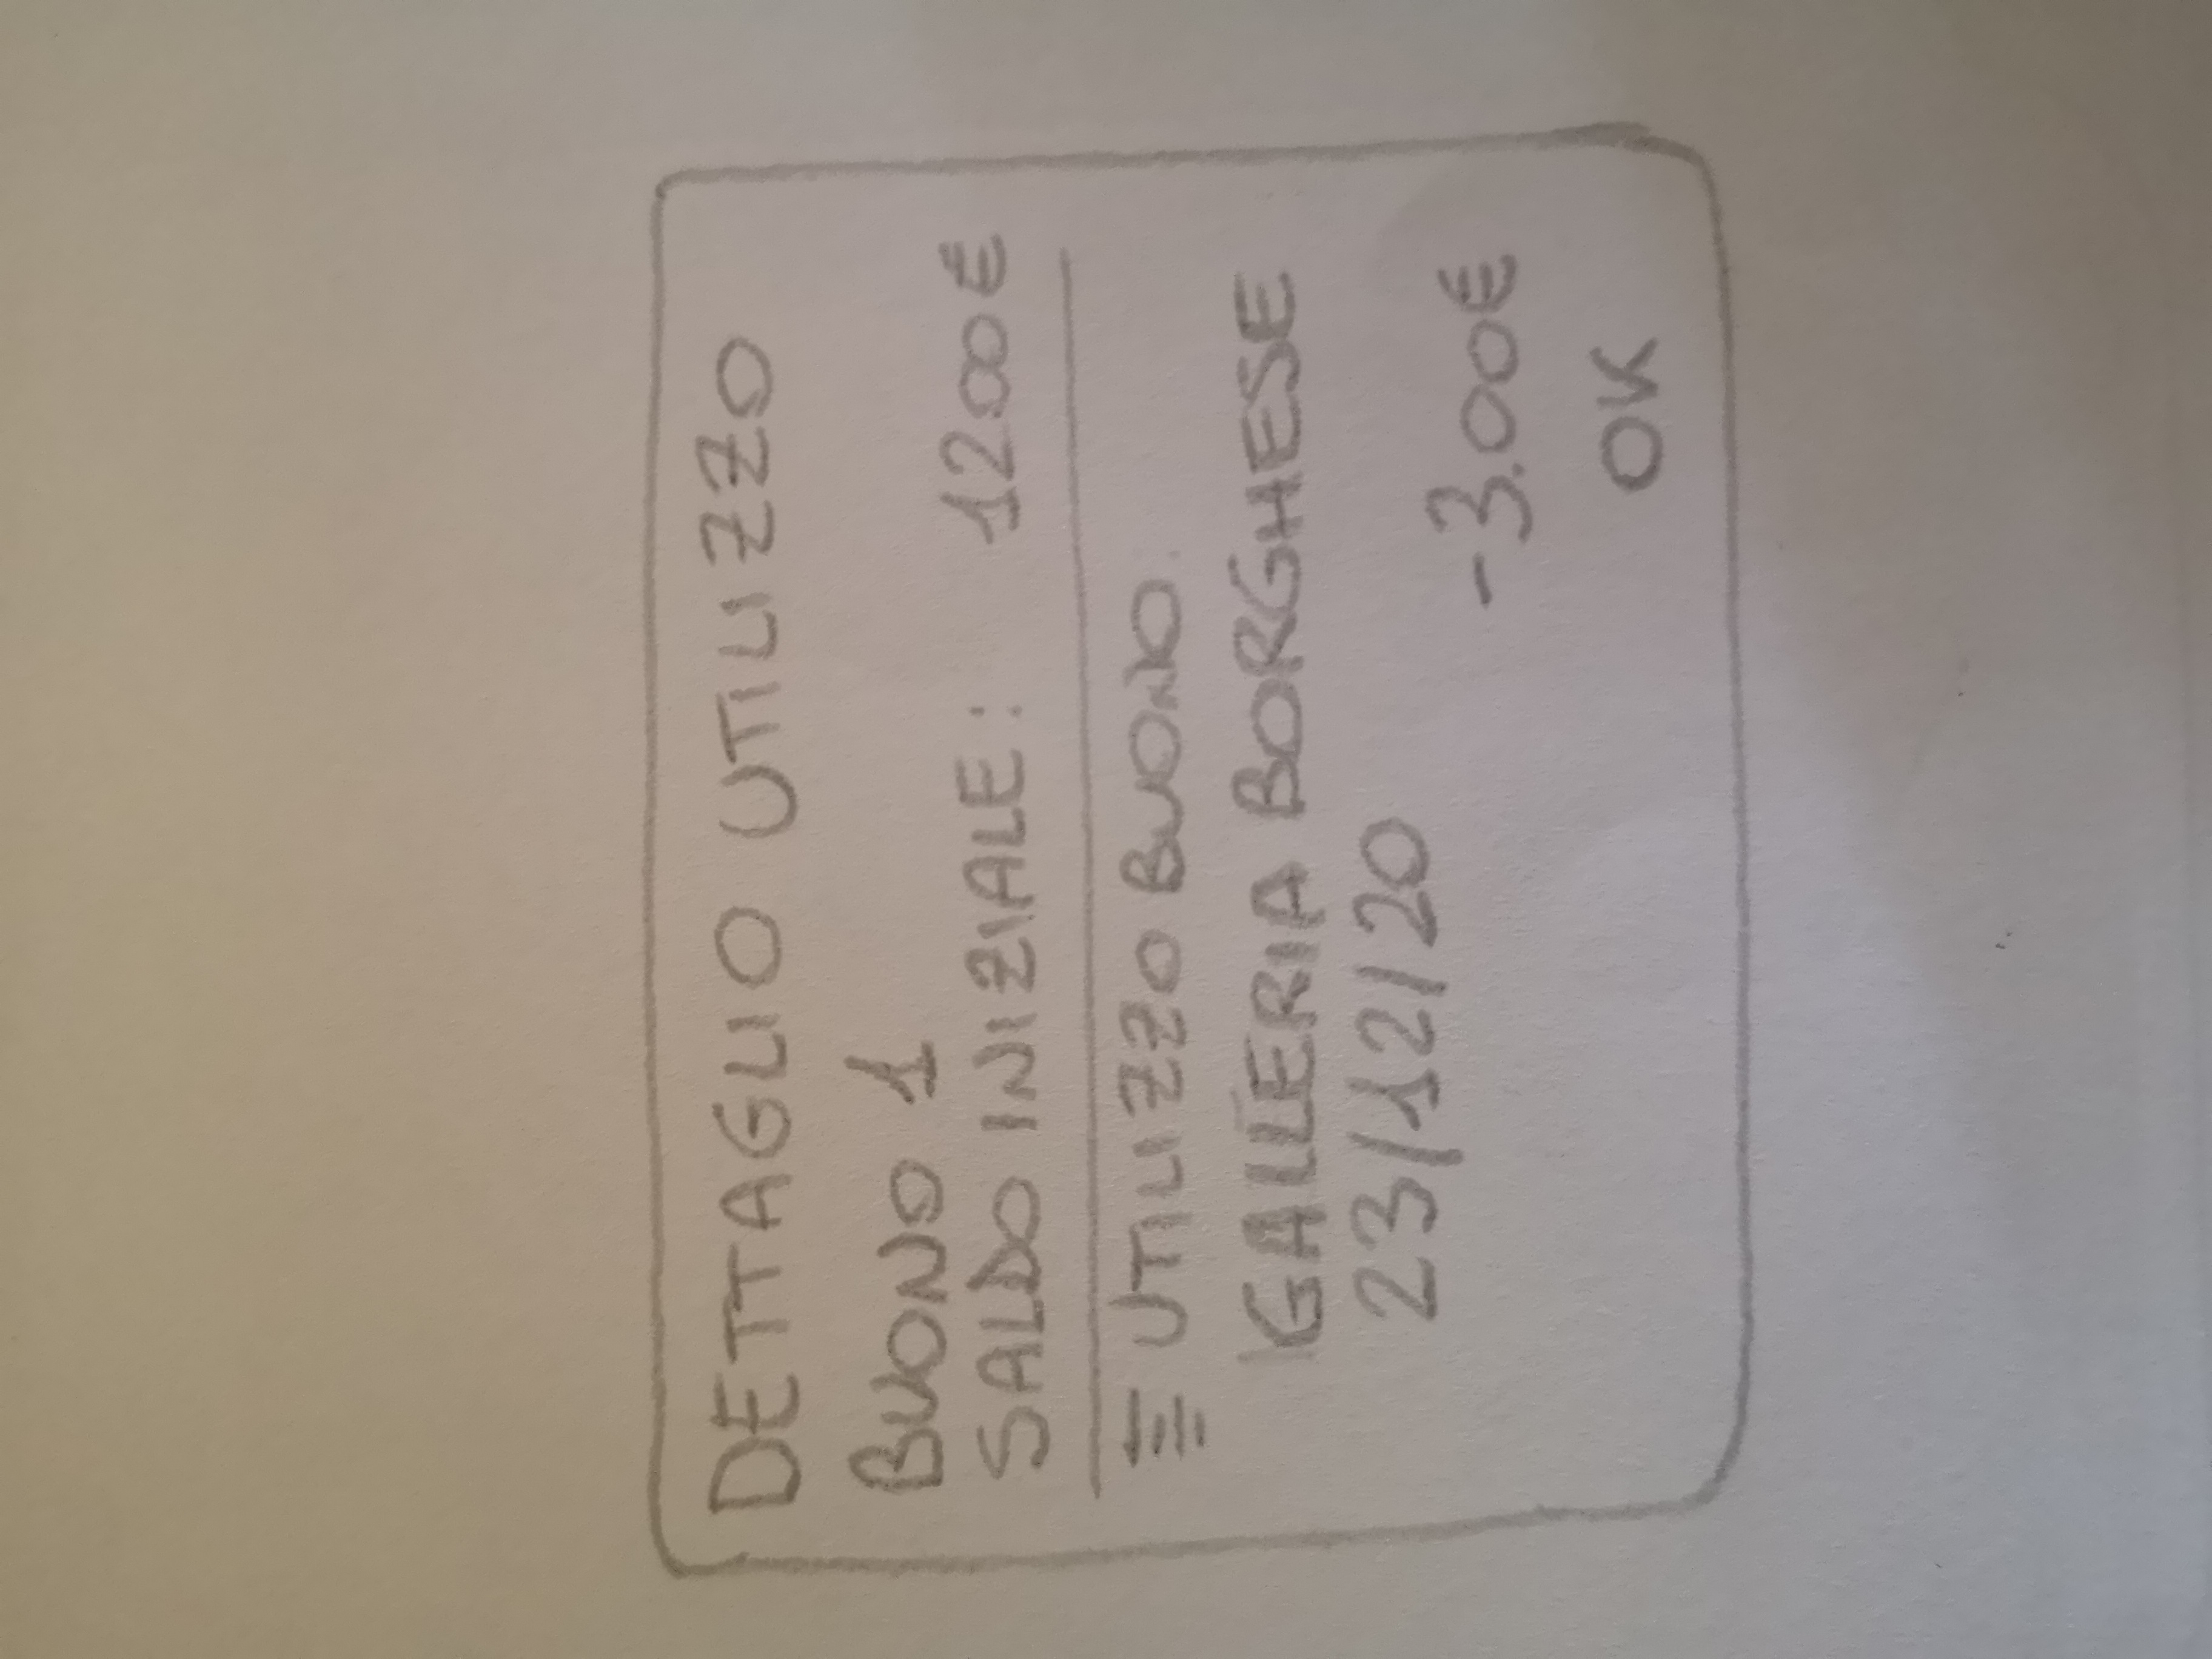 DETTAGLIO UTILIZZO
BUONO 1
SALDO INIZIALE: 12.00€
UTILIZZO BUONO:
GALLERIA BORGHESE
23/12/20
-3.00€
OK